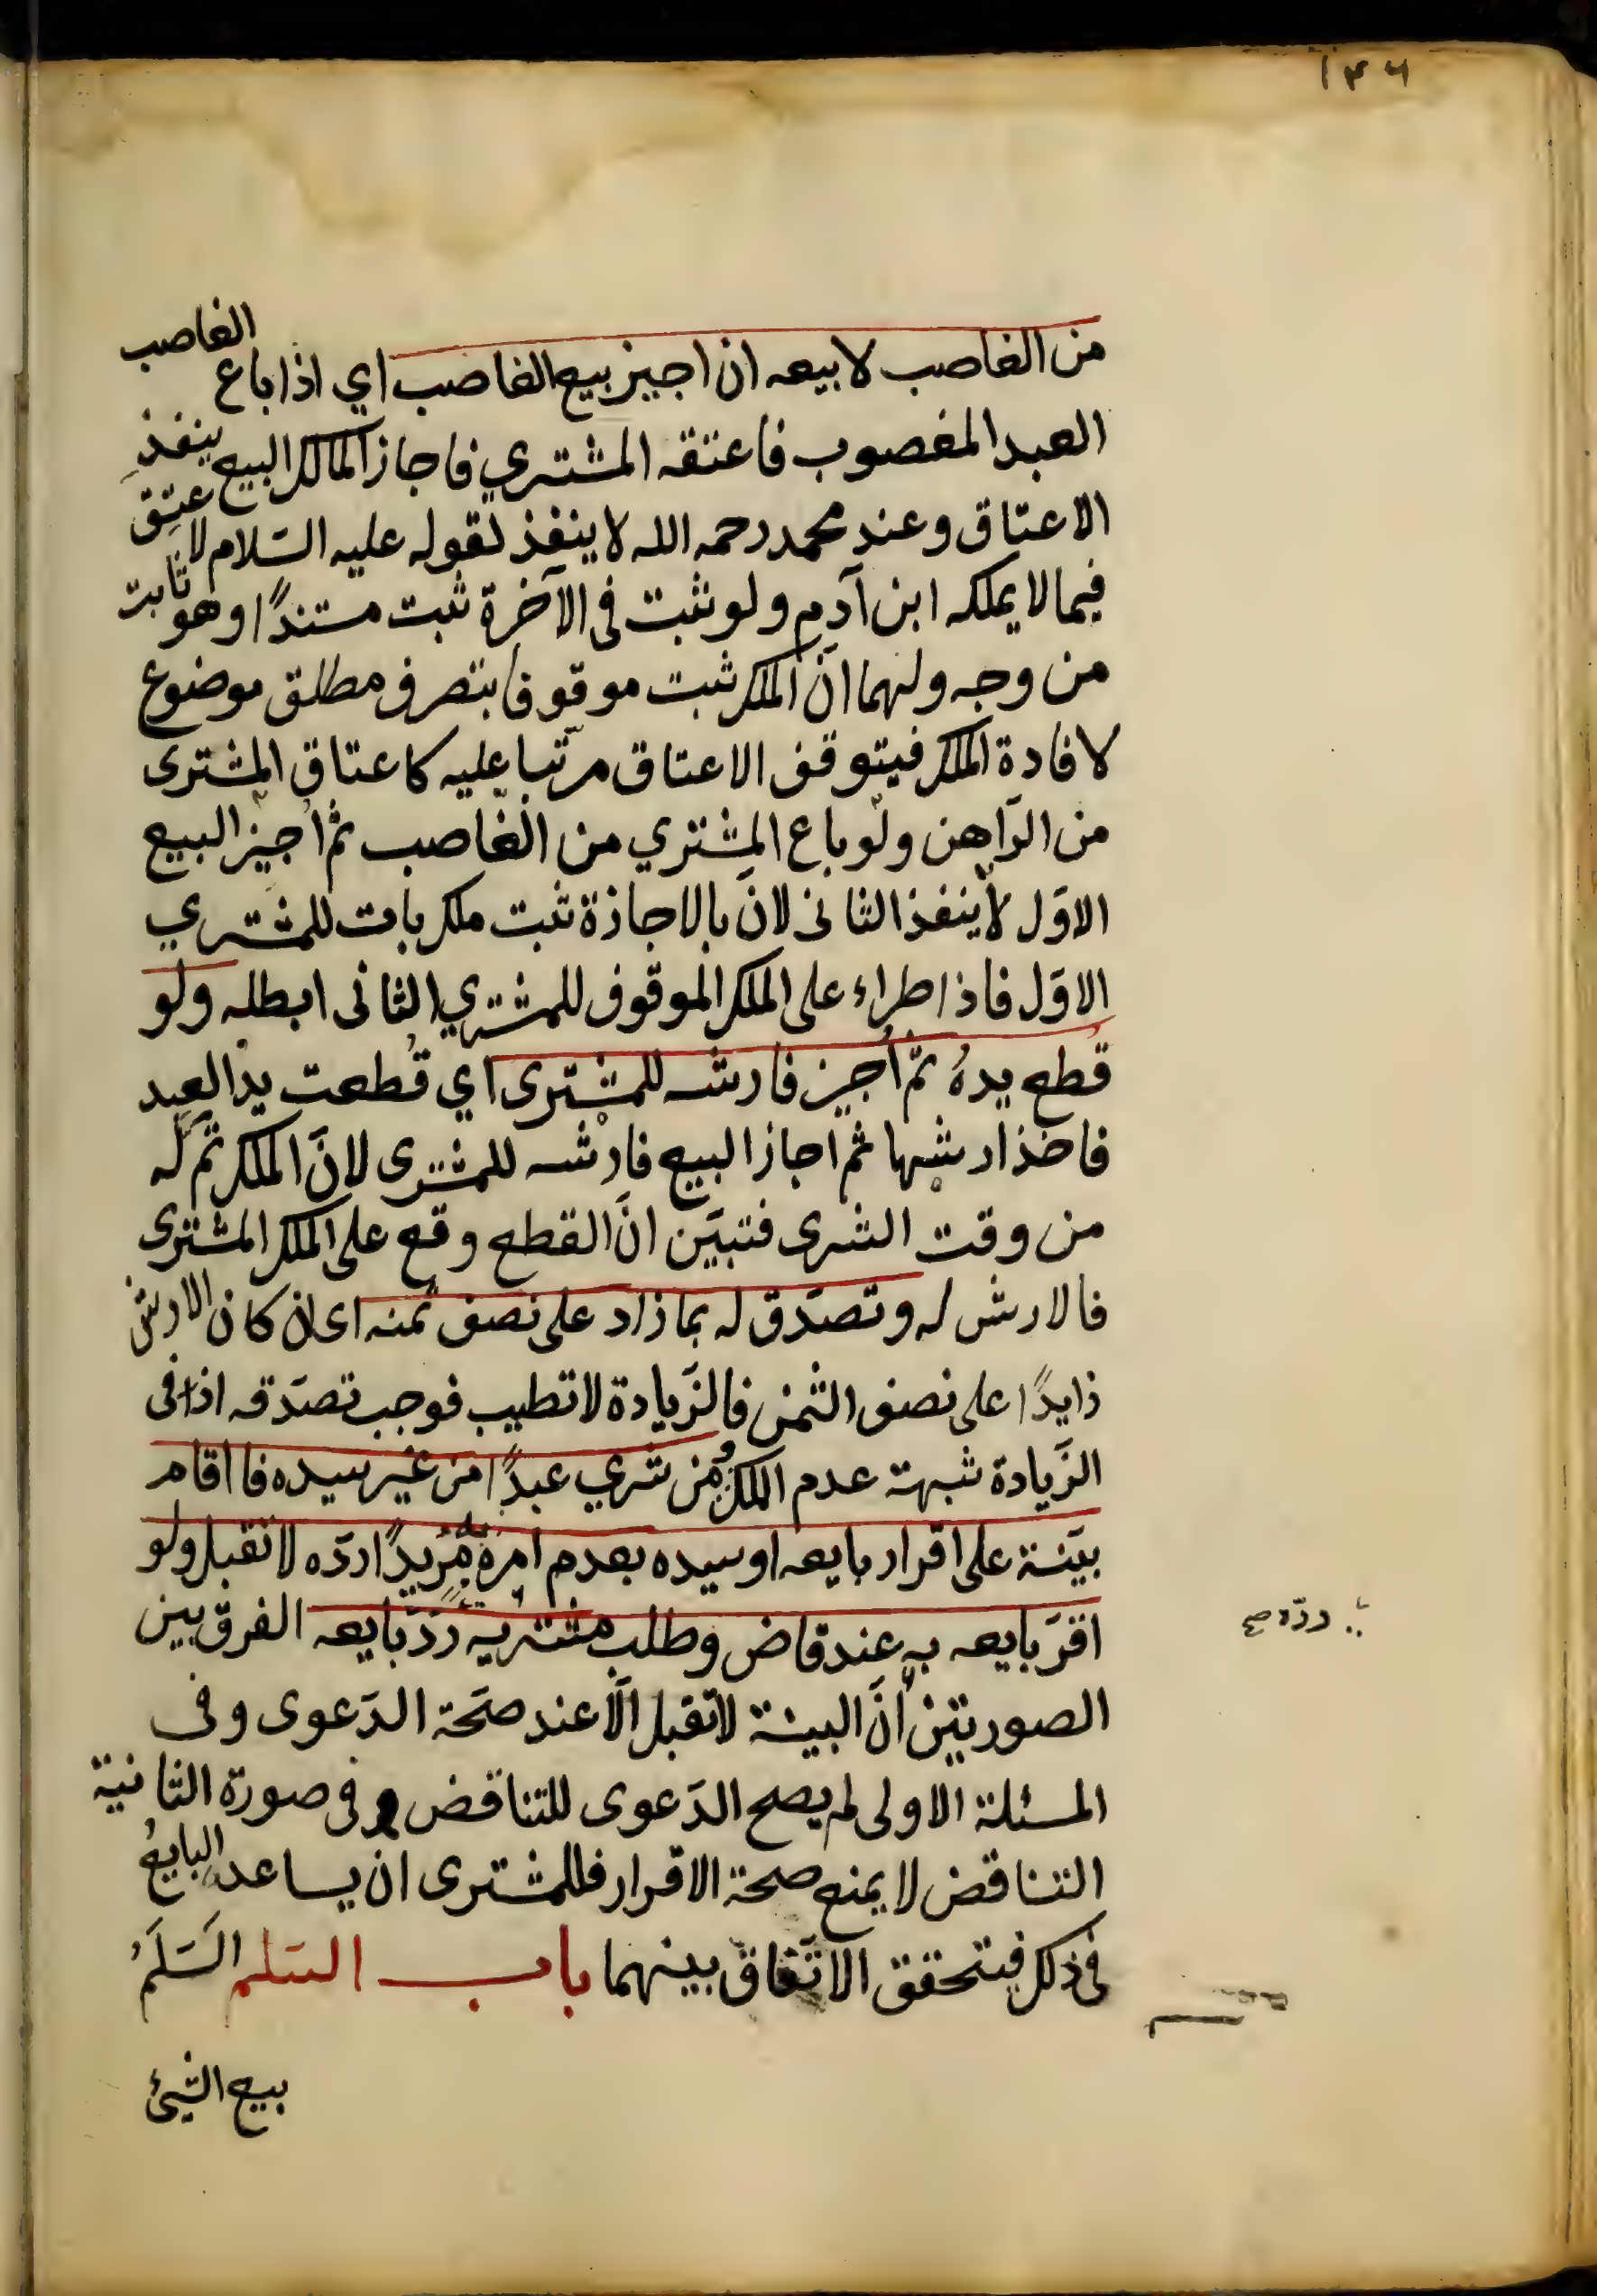 ١٣٦
من الغاصب لا بيعه ان اجيز بيع الغاصب اي اذا باع الغاصب
العبد المغصوب فاعتقه المشتري فاجاز المالك البيع ينفذ
الاعتاق وعند محمد رحمه الله لا ينفذ لقوله عليه السّلام لا عتق
فيما لا يملكه ابن آدم ولو ثبت فى الآخرة ثبت مستندًا وهو ثابت
من وجه ولهما انّ الملك ثبت موقوفا بتصرف مطلق موضوع
لافادة الملك فيتوقف الاعتاق مرتّبا عليه كاعتاق المشترى
من الرّاهن ولو باع المشتري من الغاصب ثم اجيز البيع
الاوّل لا ينفذ الثانى لانّ بالاجازة ثبت ملك بات للمشتري
الاوّل فاذا طراء على الملك الموقوف للمشتري الثانى ابطله ولو
قُطع يدهُ ثمّ اُجيز فارشه للمشترى اي قُطعت يد العبد
فاخذ ارشها ثم اجاز البيع فارشه للمشترى لانّ الملك تمّ له
من وقت الشرى فتبيّن انّ القطع وقع على الملك المشترى
فالارش له وتصدّق له بما زاد على نصف ثمنه اى ان كان الارش
زايدًا على نصف الثمن فالزّيادة لا تطيب فوجب تصدّقه اذ فى
الزّيادة شبهة عدم الملك ومن شري عبدًا من غير سيده فااقام
بيّنة على اقرار بايعه او سيده بعدم امره مُريدًا ردّه لا تقبل ولو
اقرّ بايعه به عند قاض وطلب مشتريه ردّ بايعه الفرق بين
الصورتين انّ البينة لا تقبل الّا عند صحّة الدّعوى وفى
المسئلة الاولى لم يصح الدّعوى للتناقض وفى صورة الثانية
التناقض لا يمنع صحة الاقرار فللمشترى ان يساعد البايعُ
فى ذلك فيتحقق الاتّفاق بينهما باب السّلم السّلمُ
بيع الشيئ
ردّه صح